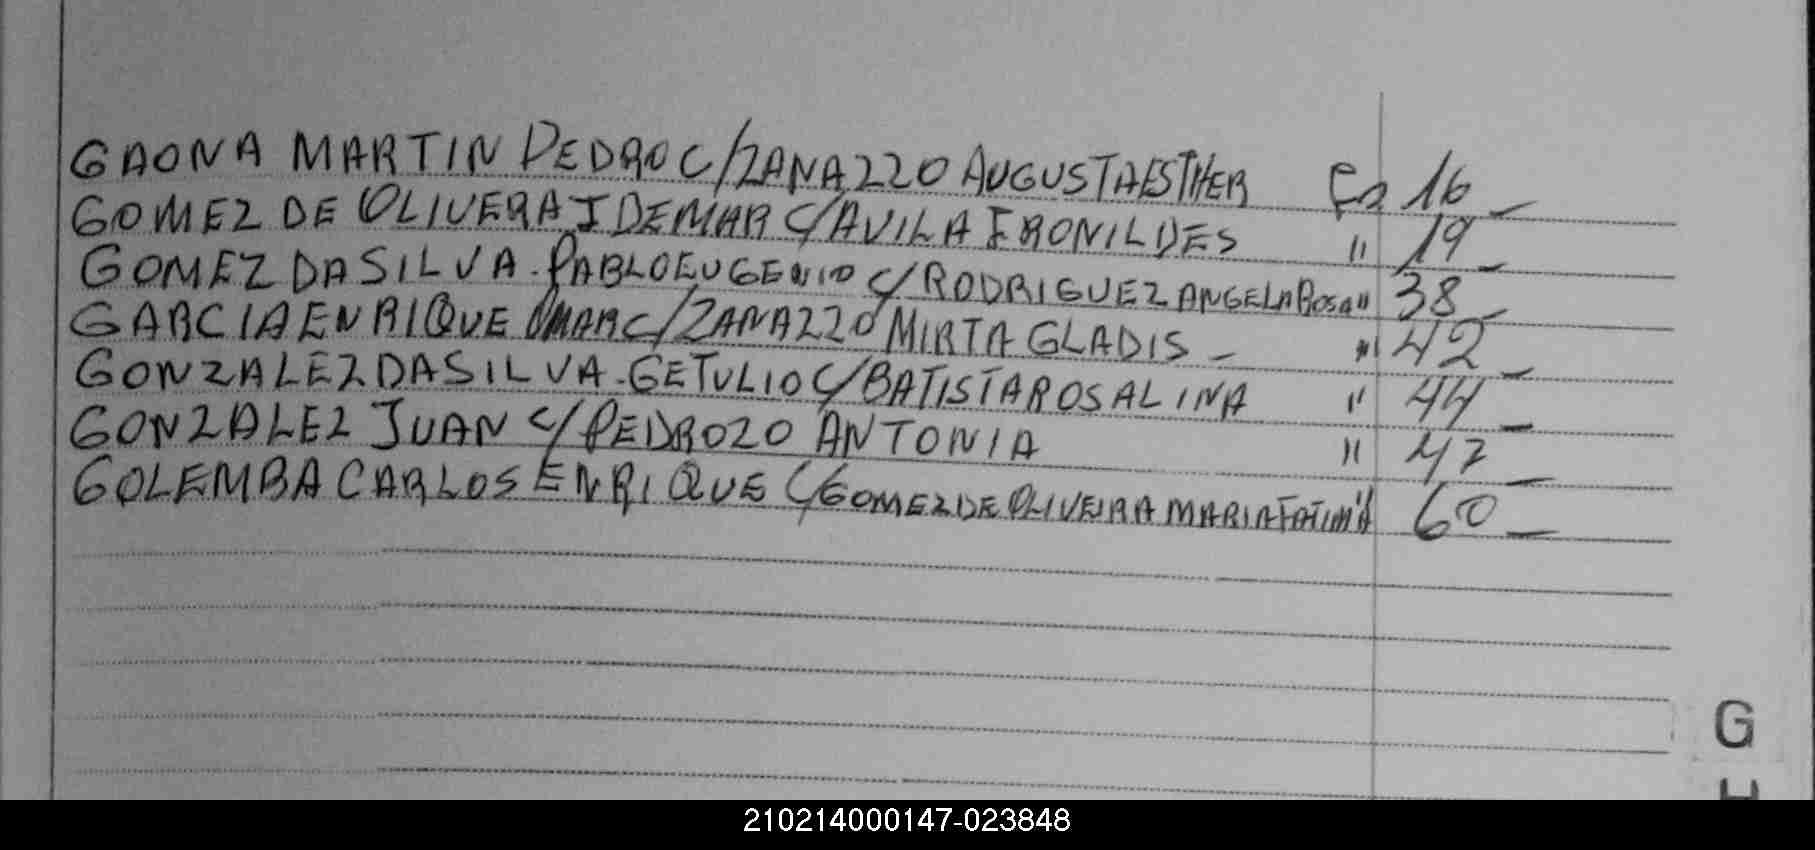 GAONA MARTIN PEDRO C/ZANAZZO AUGUSTA ESTHER Fo 16_
GOMEZ DE OLIVERA IDEMAR C/AVILA IRONILDES " 19_
GOMEZ DA SILVA. PABLO EUGENIO C/RODRIGUEZ ANGELA ROSA " 38_
GARCIA ENRIQUE OMAR C/ZANAZZO MIRTA GLADIS _ " 42_
GONZALEZ DA SILVA. GETULIO C/BATISTA ROSALINA " 44_
GONZALEZ JUAN C/PEDROZO ANTONIA " 47_
GOLEMBA CARLOS ENRIQUE C/GOMEZ DE OLIVEIRA MARIA FATIMA " 60_
G
H
210214000147-023848